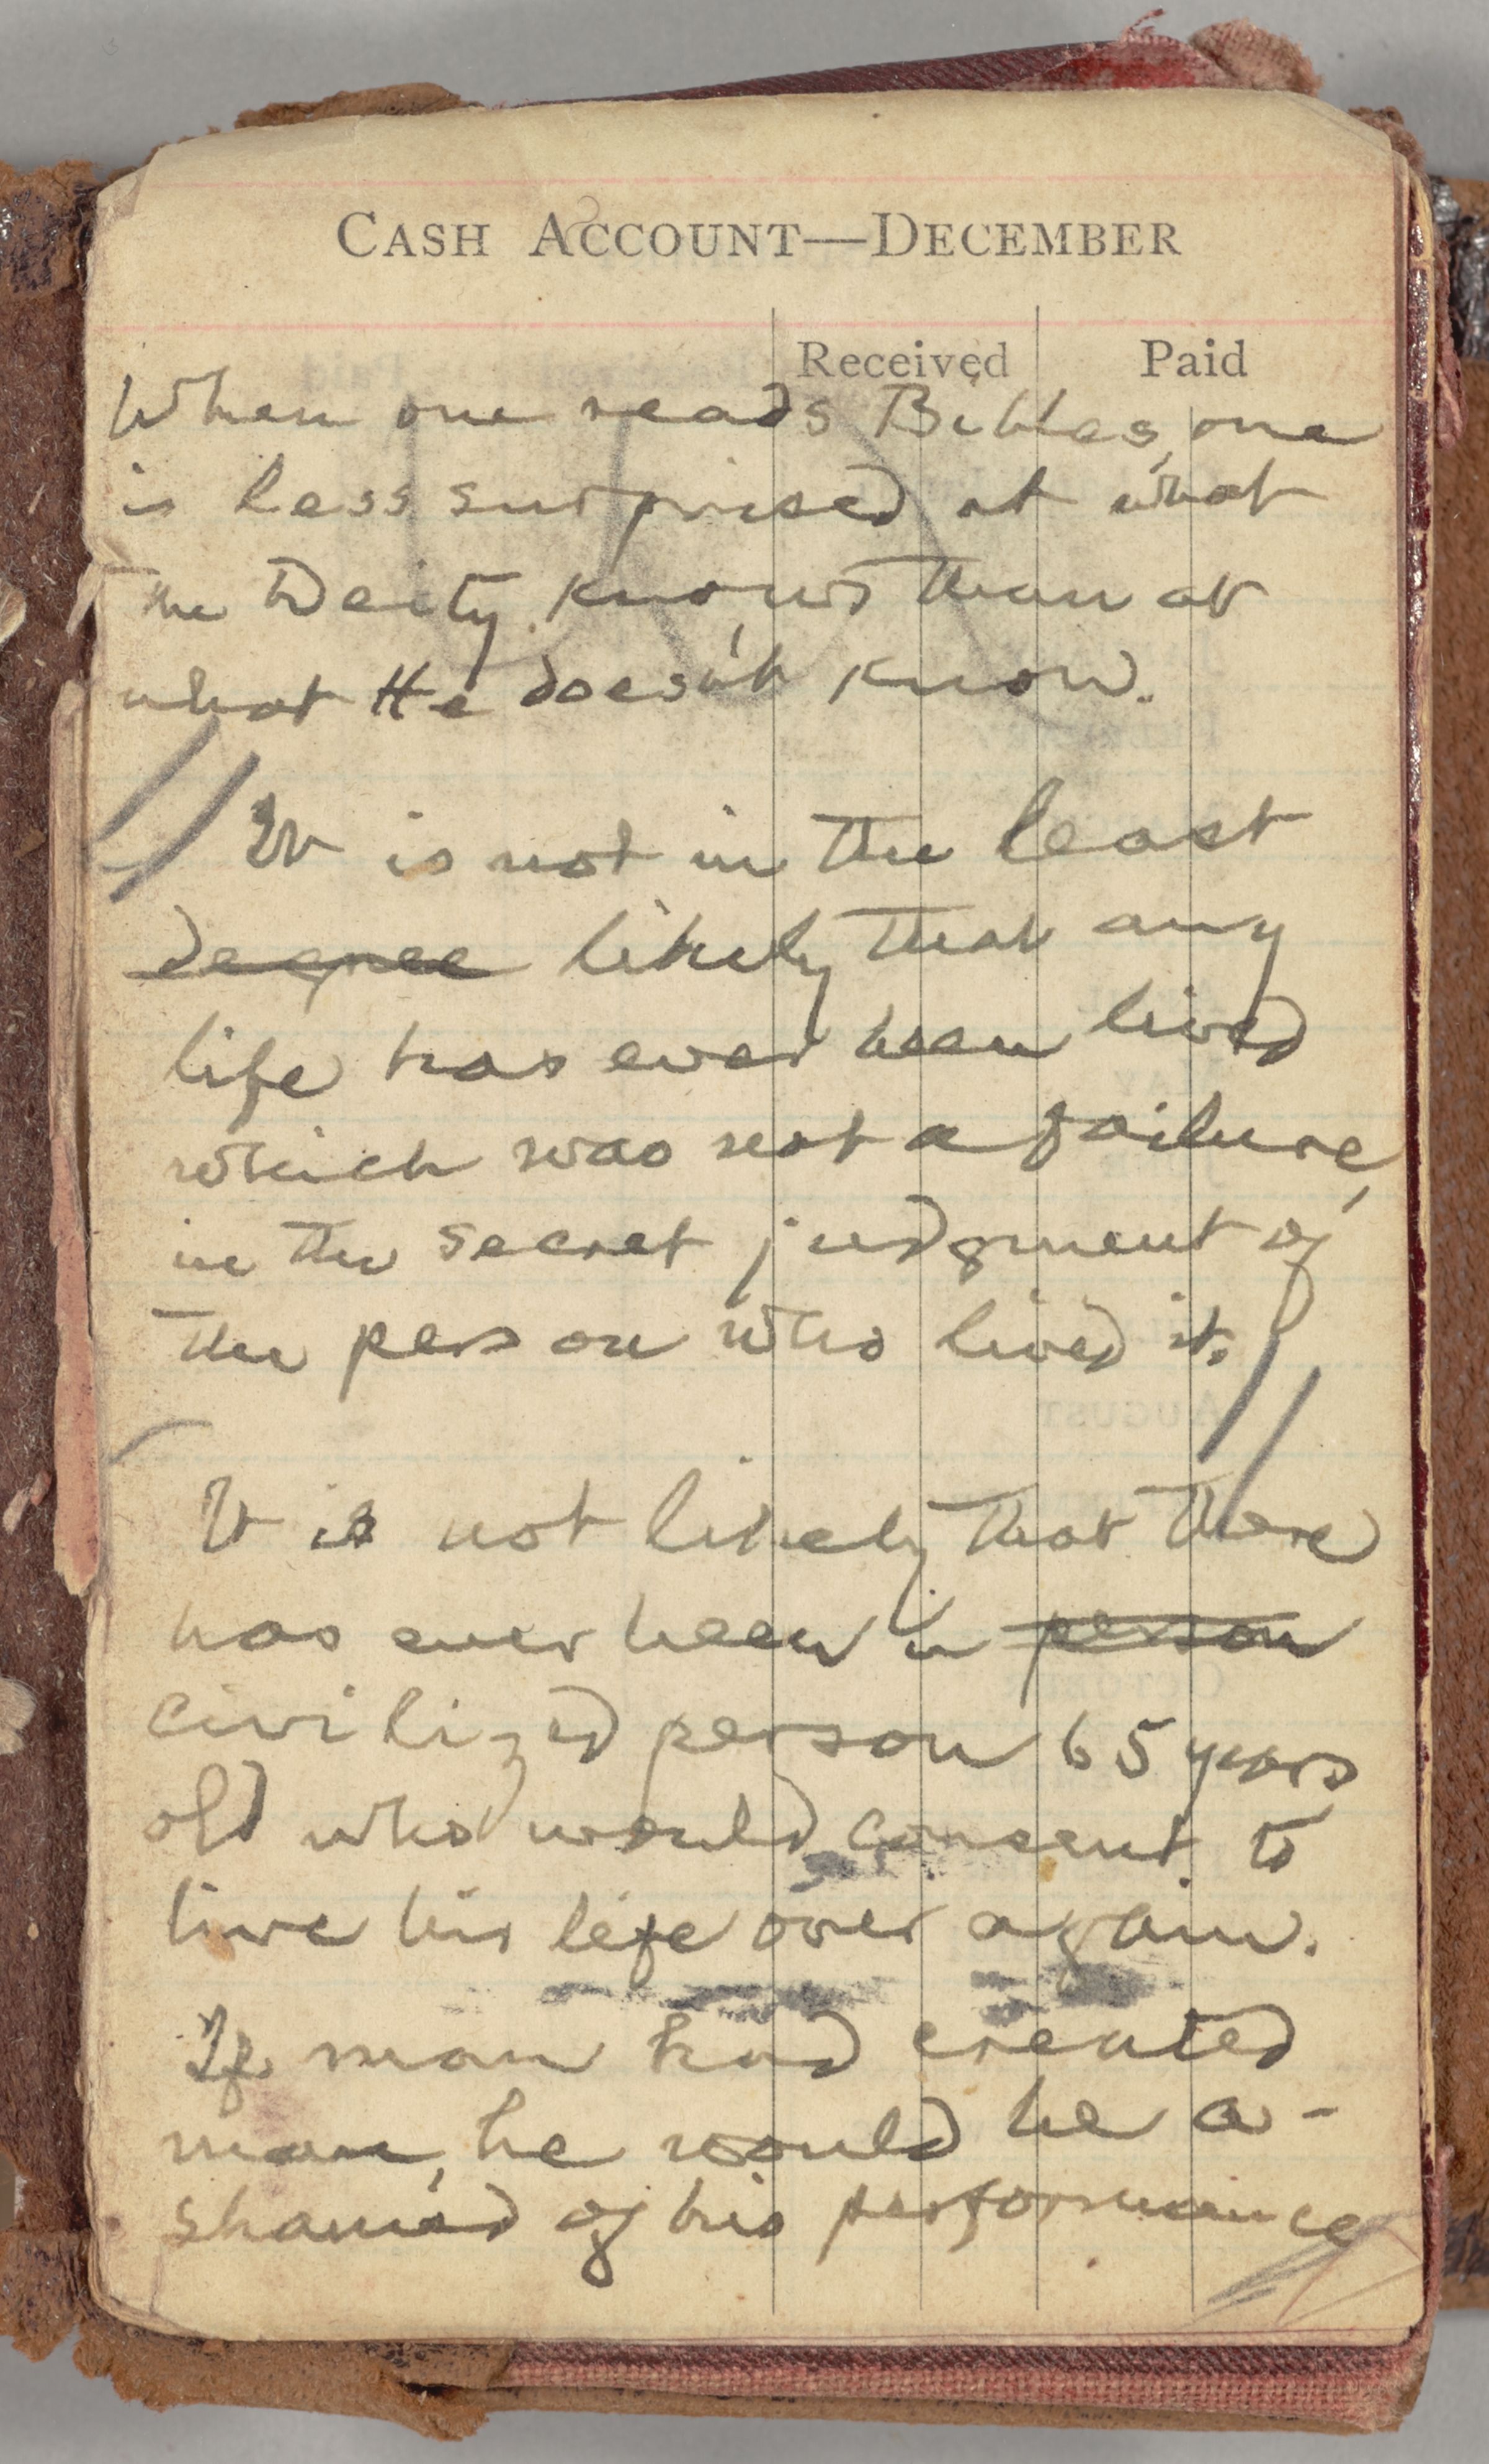 CASH ACCOUNT—DECEMBER
Received Paid
When one reads Bibles, one
is less surprised at what
the Deity knows than at
what He doesn't know.
It is not in the least
degree likely that any
life has ever been lived
which was not a failure,
in the secret judgment of
the person who lived it.
It is not likely that there
has ever been a person
civilized person 65 years
old who would consent to
live his life over again.
If man had created
man, he would be a-
shamed of his performance